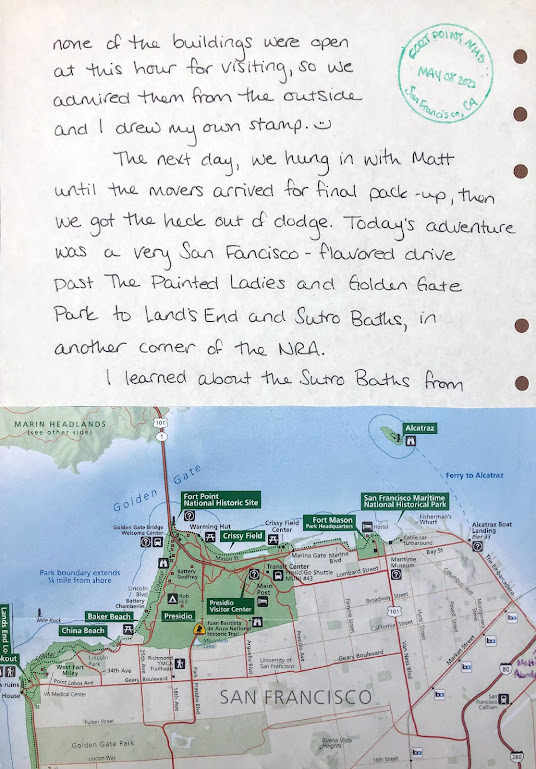 none of the buildings were open
at this hour for visiting, so we
admired them from the outside
and I drew my own stamp.
FORT POINT NHS
MAY 08 2021
San Francisco, CA
The next day, we hung in with Matt
until the movers arrived for final pack-up, then
we got the heck out of dodge. Today's adventure
was a very San Fancisco-flavored drive
past The Painted Ladies and Golden Gate
Park to Land's End and Sutro Baths, in
another corner of the NRA.
I learned about the Sutro Baths from
MARIN HEADLANDS
(see other side)
101
1
Alcatraz
Ferry to Alcatraz
Golden Gate
Fort Point
National Historic Site
San Francisco Maritime
National Historical Park
Golden Gate Bridge
Welcome Center
Warming Hut
Crissy Field
Crissy Field
Center
Fort Mason
Park Headquarters
Hostel
Fisherman's
Wharf
Cable car
turnaround
Alcatraz Boat
Landing
Pier 33
Mason St
Marina Gate
Marina
Blvd
Bay St
The Embarcadero
Park boundary extends
¼ mile from shore
Battery
Godfrey
Transit Center
PresidiGo Shuttle
MUNI #43
Lombard Street
Maritime
Museum
Lincoln
Blvd
Battery
Chamberlin
Rob
Hill
Main
Post
Presidio
Visitor Center
Broadway Street
101
Columbus Ave
Baker Beach
China Beach
Mile Rock
Presidio
Juan Bautista
de Anza National
Historic Trail
Mountain
Lake
California Street
Lands End Lo
okout
s ruins
House
West Fort
Miley
Lincoln
Park
34th Ave
25th Ave
Richmond
YMCA
Trailhead
Arguello Blvd
University of
San Francisco
Presidio Ave
Geary Boulevard
Van Ness Ave
Market Street
Point Lobos Ave
Geary Boulevard
VA Medical Center
Park Presidio Blvd
SAN FRANCISCO
80
San
Francisco
Caltrain
Fulton Street
Golden Gate Park
Lincoln Way
Buena Vista
Heights
16th Street
280